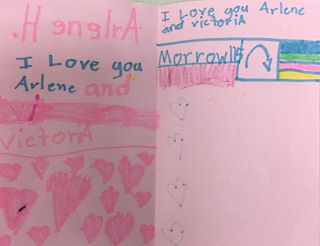 Arlene H.
I Love you
Arlene and
i
VictoriA
I Love you Arlene
and victoriA